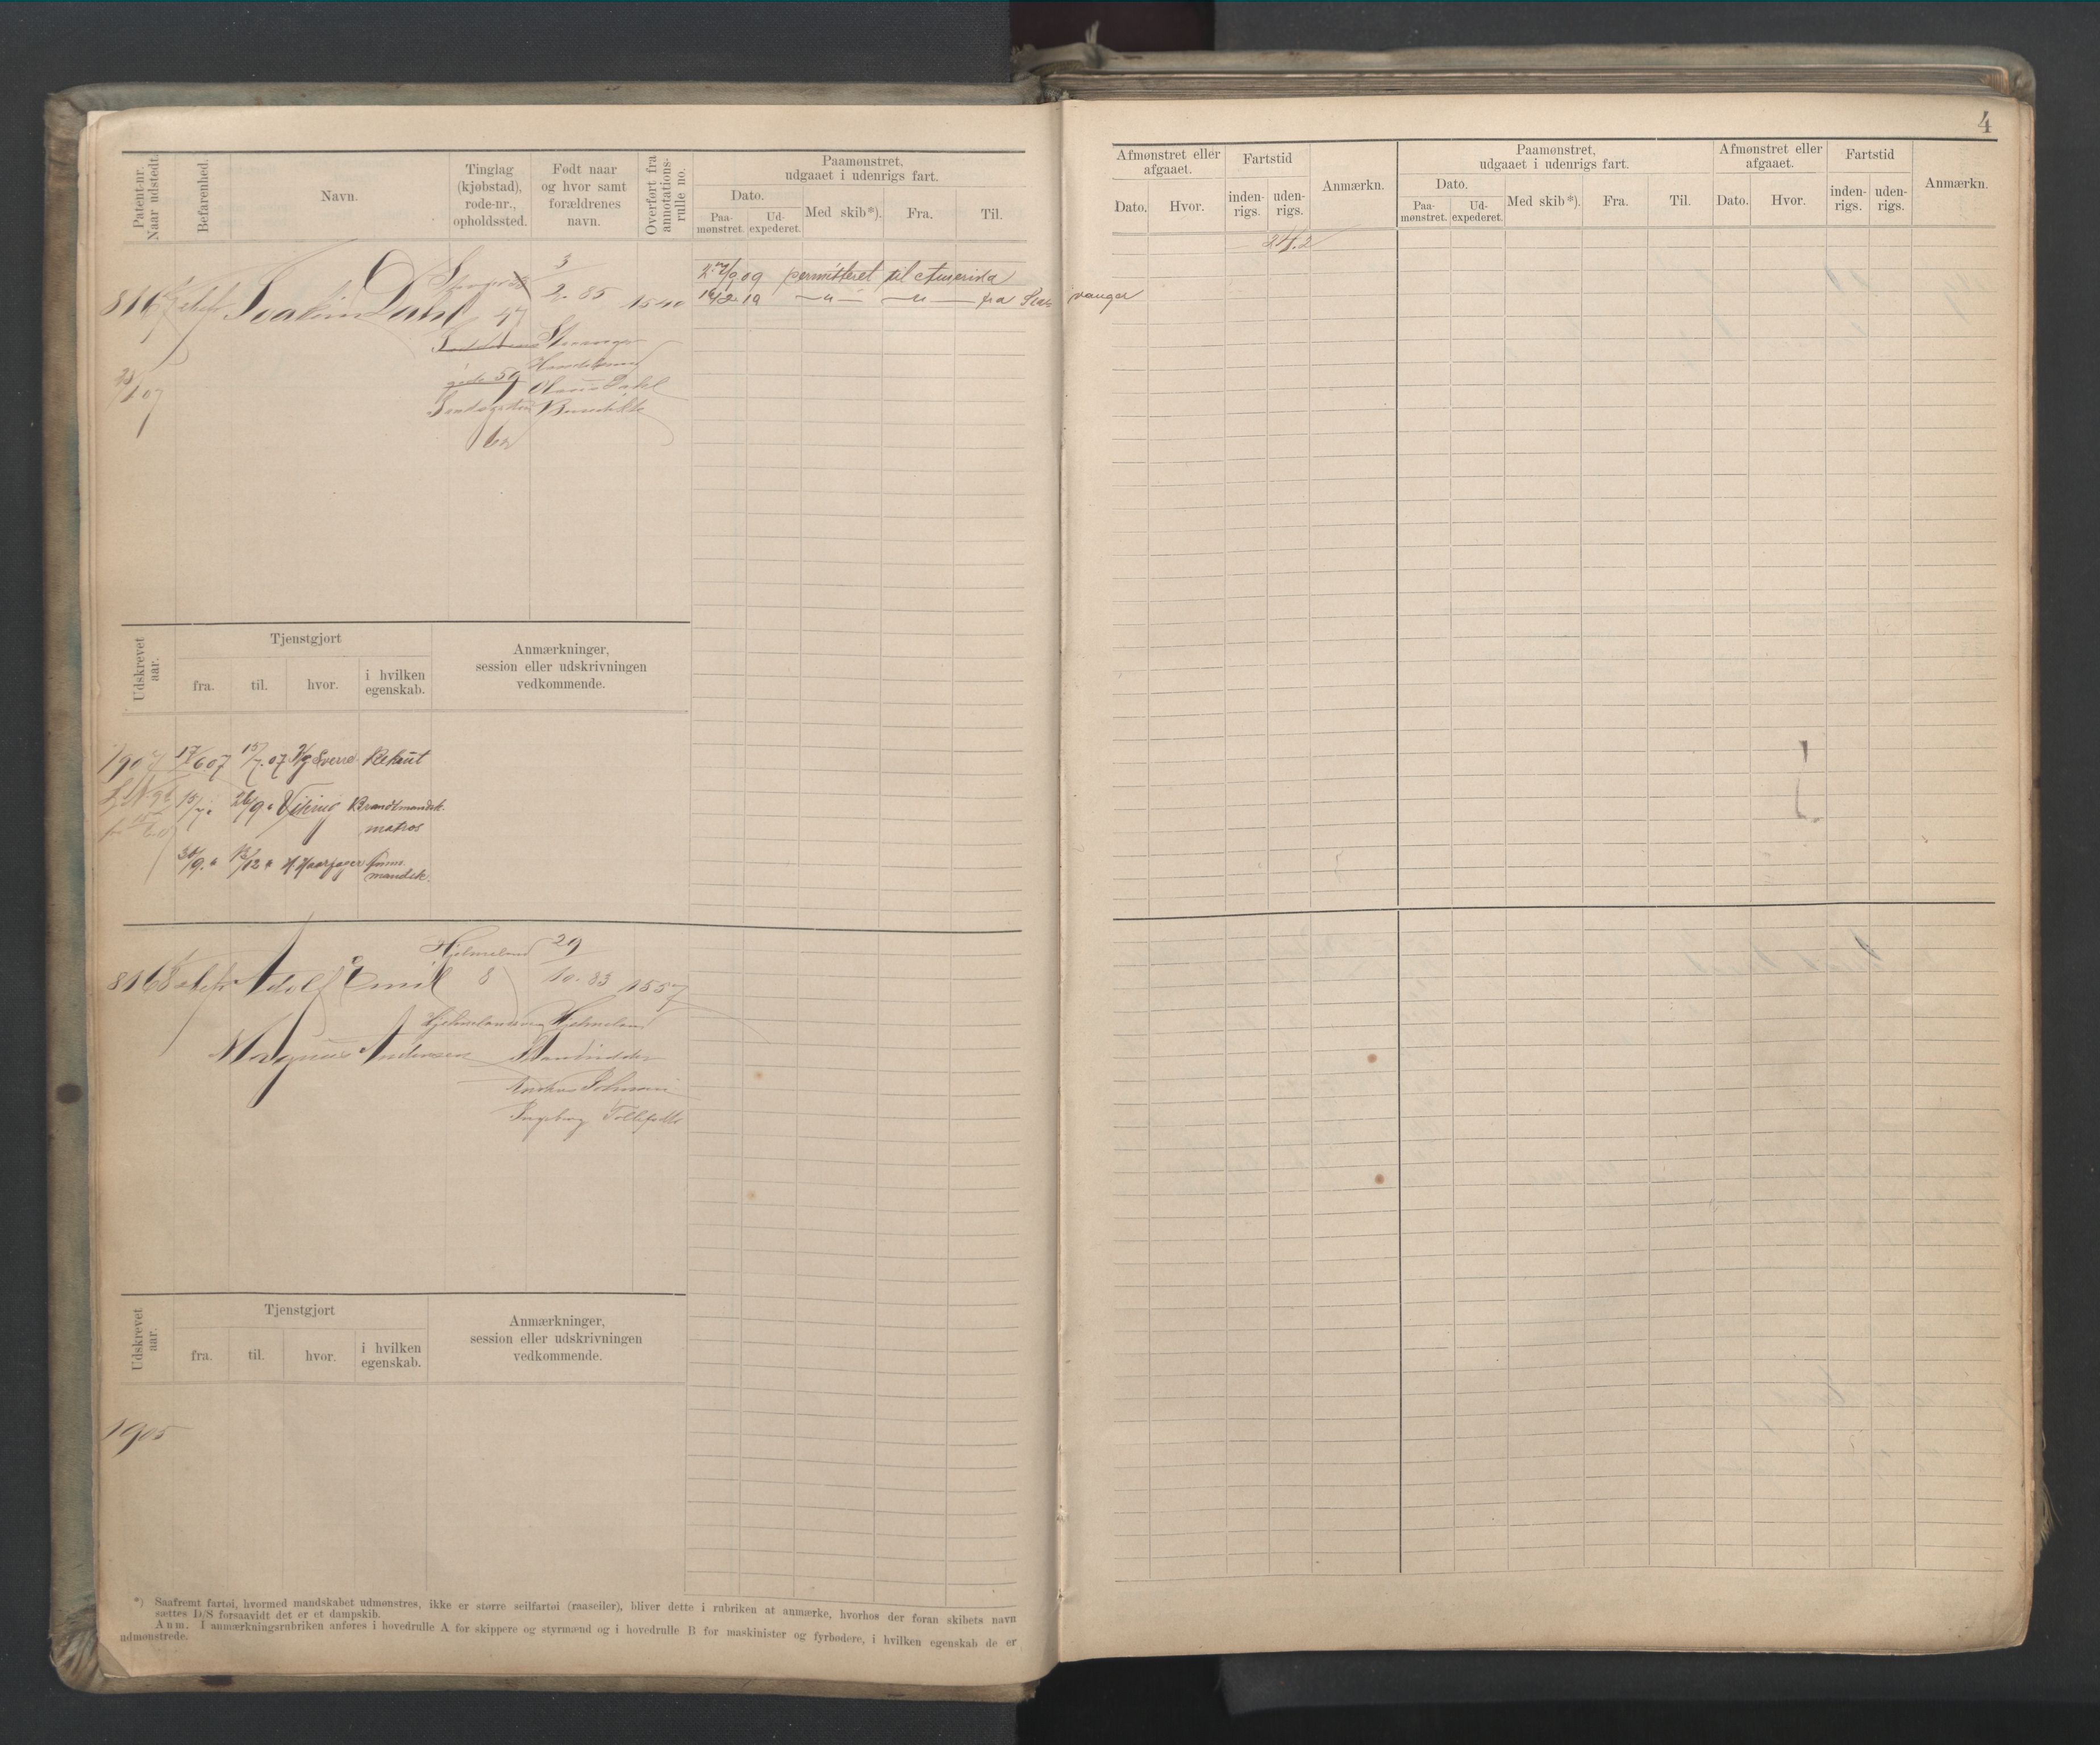 4
Patent-nr. Naar udstedt.
Befarenhed.
Navn.
Tinglag (kjøbstad), rode-nr., opholdssted.
Født naar og hvor samt forældrenes navn.
Overført fra annotations-rulle no.
Paamønstret, udgaaet i udenrigs fart.
Dato.
Paa-mønstret.
Ud-expederet.
Med skib*).
Fra.
Til.
Afmønstret eller afgaaet.
Dato.
Hvor.
Fartstid
inden-rigs.
uden-rigs.
Anmærkn.
Paamønstret, udgaaet i udenrigs fart.
Dato.
Paa-mønstret.
Ud-expederet.
Med skib*).
Fra.
Til.
Afmønstret eller afgaaet.
Dato.
Hvor.
Fartstid
inden-rigs.
uden-rigs.
Anmærkn.
24.2
3/2. 85
1540
Dahl
47
09 permitteret til Amerika
fra Stavanger
Stavanger
59
Dahl
Udskrevet aar.
Tjenstgjort
fra.
til.
hvor.
i hvilken egenskab.
Anmærkninger, session eller udskrivningen vedkommende.
1907 17/6 07 15/7. 07 Rekrut
15/7 Viking
matros
mandsk.
8168 Adolf Emil
Hjelmeland
8
29/10. 83
1557
Magnus Andersen
Hjelmeland
Ingeborg
Udskrevet aar.
Tjenstgjort
fra.
til.
hvor.
i hvilken egenskab.
Anmærkninger, session eller udskrivningen vedkommende.
1905
*) Saafremt fartøi, hvormed mandskabet udmønstres, ikke er større seilfartøi (raaseiler), bliver dette i rubriken at anmærke, hvorhos der foran skibets navn
sættes D/S forsaavidt det er et dampskib.
Anm. I anmærkningsrubriken anføres i hovedrulle A for skippere og styrmænd og i hovedrulle B for maskinister og fyrbødere, i hvilken egenskab de er
udmønstrede.